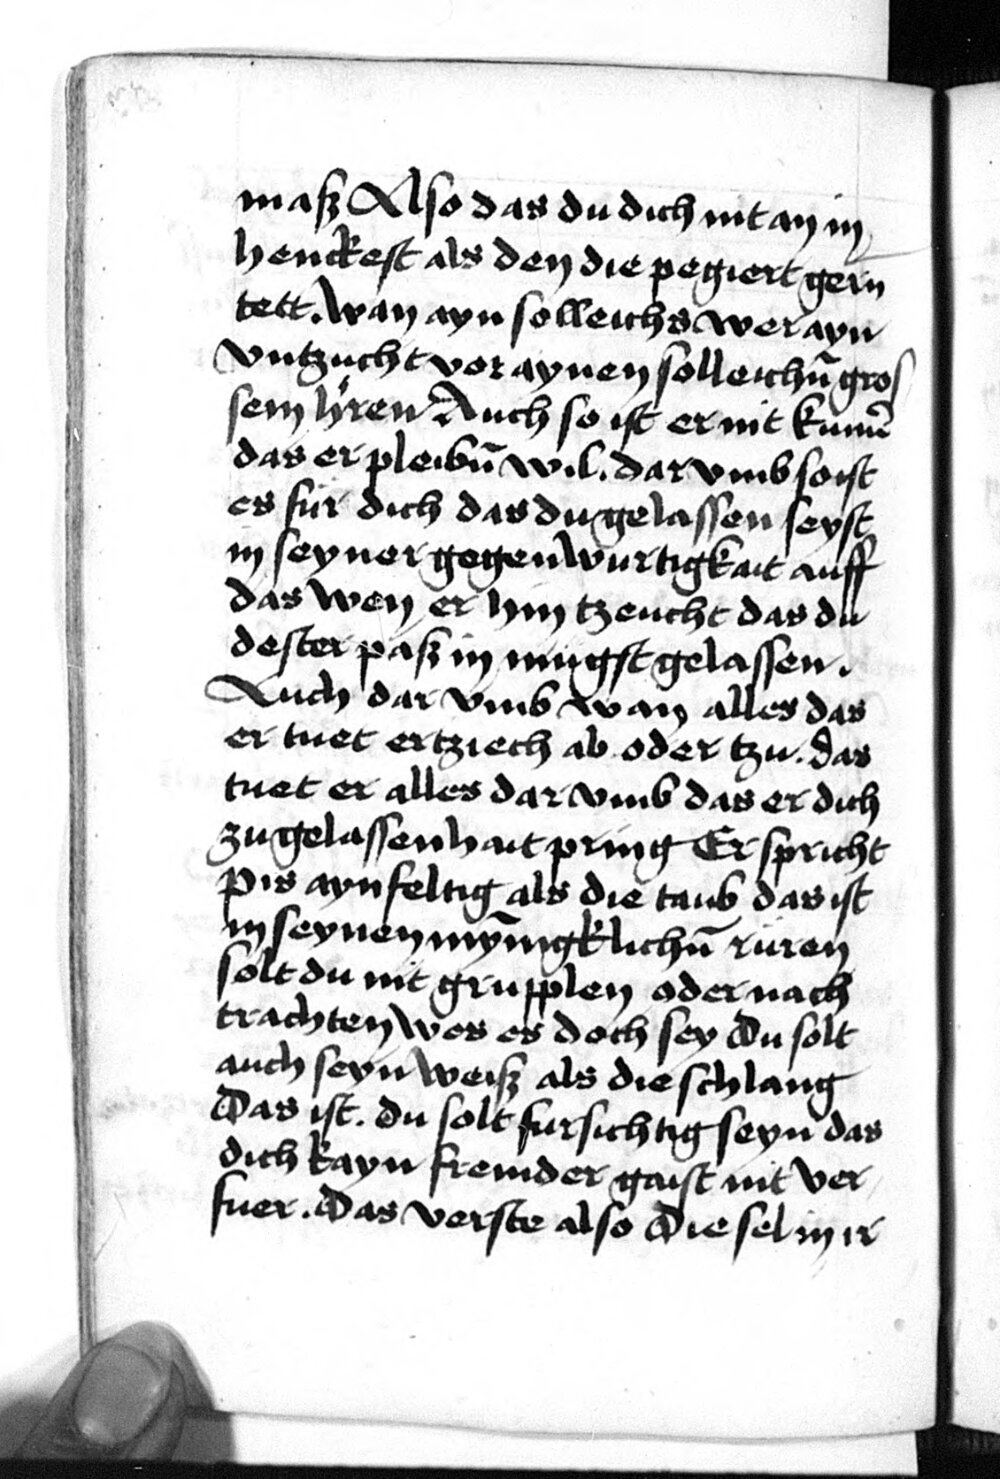 masz Also das du dich nit an in
henckest als den die pegiert gern
tett. Wan ayn solleichs wer ayn
vntzucht vor aynen solleichn̄ gros
sem hr̈ren Auch so ist er nit kumē
das er pleibn̄ wil. dar vmb so ist
es für dich das du gelassen seyst
in seyner gegenwurtigkait auff
das wen er hin tzeucht das du
dester pasz in mugst gelassen.
Auch dar vmb wan alles das
er tuet ertziech ab oder tzu. das
tuet er alles dar vmb das er dich
zu gelassenhait pring Er spricht
Pis aynfeltig als die taub das ist
in seynen mȳnigklichn̄ rüren
solt du nit grupplen oder nach
trachten wos es doch sey Du solt
auch seyn weisz als die schlang
Das ist. du solt fursichtig seyn das
dich kayn fremder gaist nit ver
fuer. Das verste also Die sel in ir